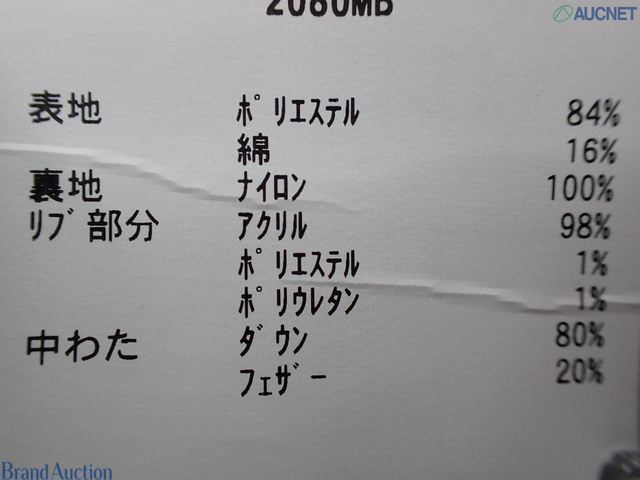 2080MB
AUCNET
表地 ﾎﾟﾘｴｽﾃﾙ 84%
綿 16%
裏地 ﾅｲﾛﾝ 100%
ﾘﾌﾞ部分 ｱｸﾘﾙ 98%
ﾎﾟﾘｴｽﾃﾙ 1%
ﾎﾟﾘｳﾚﾀﾝ 1%
中わた ﾀﾞｳﾝ 80%
ﾌｪｻﾞｰ 20%
Brand Auction